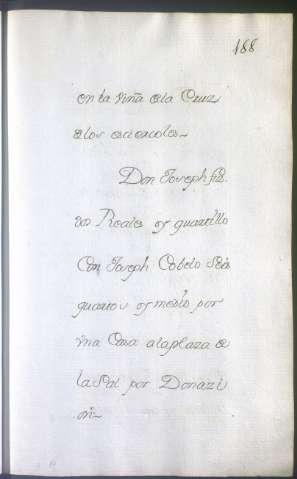 188
en la viña de la Cruz
de los
Don Joseph
dos Reales y quartillo
Con Joseph Cobelo Seis
quartos y medio por
vna Casa a la plaza de
la Sal por Donazi
on~